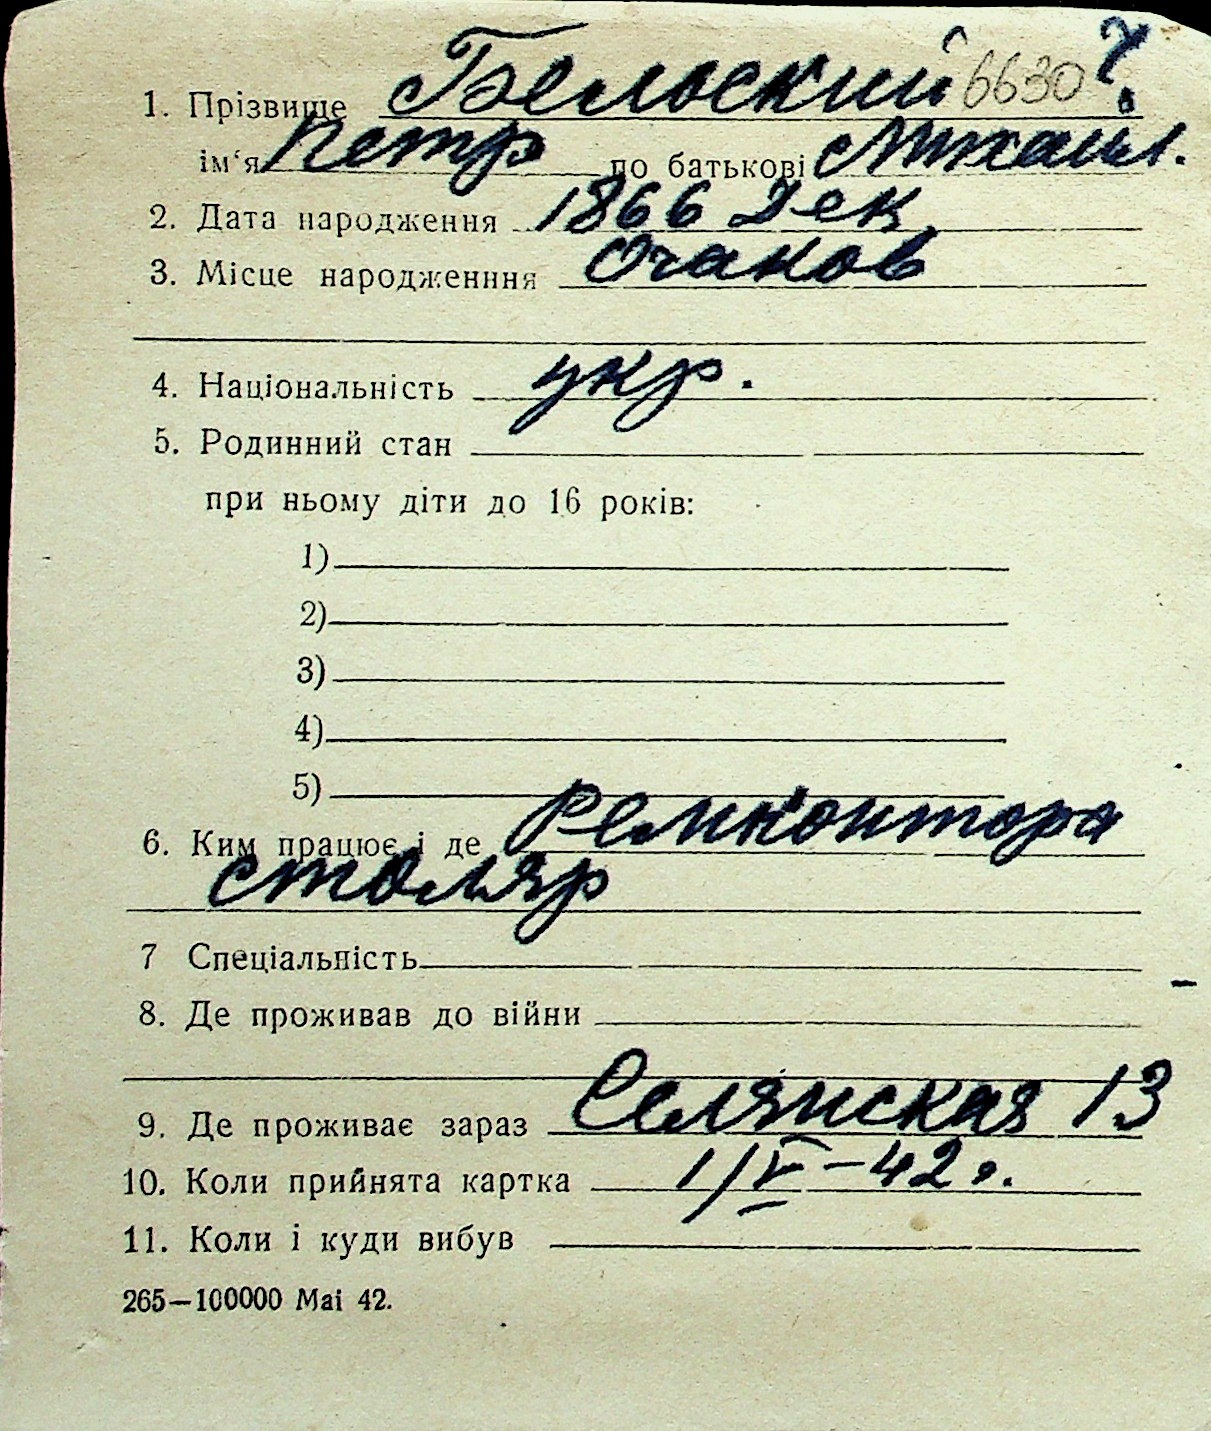 ч.
1. Прізвище Бельский 6630
ім‘я Петр по батькові Михайл.
2. Дата народження 1866 Дек
3. Місце народженння Очаков
4. Національність укр.
5. Родинний стан
при ньому діти до 16 років:
1)
2)
3)
4)
5)
6. Ким працює і де Ремконтора
столяр
7 Спеціальність
8. Де проживав до війни
9. Де проживає зараз Селянская 13
10. Коли прийнята картка 1/V-42 г.
11. Коли і куди вибув
265—100000 Mai 42.